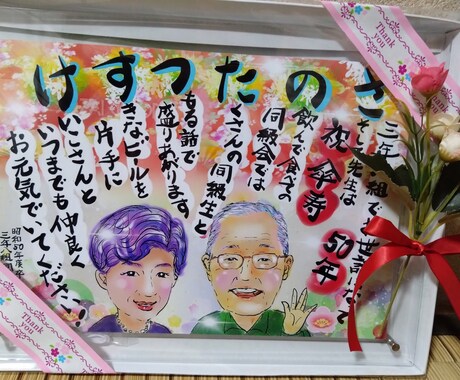 さのたつすけ
三年 組でお世話になって
先生は
祝 傘寿 50年
飲んで食べての
同級会では
くさんの同級生と
もる話で
盛りあがります
きなビールを
片手に
いこさんと
いつまでも仲良く
お元気でいてください!
昭和50年度卒
三年 組
Thank you
Thank you
Thank you
Thank you